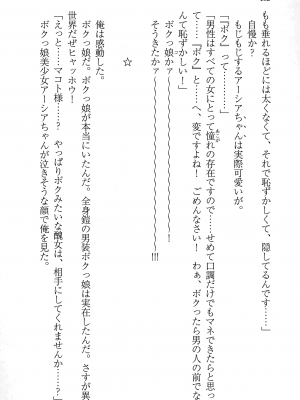 もも垂れるほどには太くなくて、それで恥ずかしくて、隠してるんです……」
自慢か。
もじもじするアーシアちゃんは実際可愛いが。
「『ボク』って……？」
「男性はすべての女にとって憧れの存在ですので……せめて口調だけでもマネできたらと思っ
て……『ボク』と……へ、変ですよね！　ごめんなさい！　わぁ、ボクったら男の人の前でな
んて恥ずかしい――」
ボクっ娘かァ～～～～～～～～～～～～～～～～～～～
そうきたかァ～～～～～～～～～～～～～～～～～～～!!!
☆
俺は感動した。
ボクっ娘だ。ボクっ娘が本当にいたんだ。全身鎧の男装ボクっ娘は実在したんだ。さすが異
世界だぜヒャッホウ！
「えっと……マコト様……？　やっぱりボクみたいな醜女は、相手にしてくれませんか……？」
ボクっ娘美少女アーシアちゃんが泣きそうな顔で俺を見た。